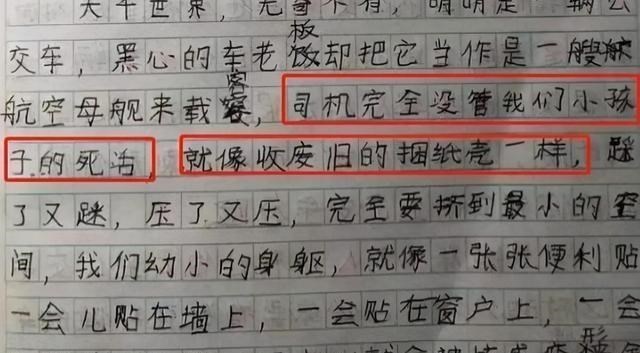 大千世界，无奇不有，明明是一辆公
交车，黑心的车老板却把它当作是一艘
航空母舰来载客，司机完全没管我们小孩
子的死活，就像收废旧的捆纸壳一样，踩
了又踩，压了又压，完全要挤到最小的空
间，我们幼小的身躯，就像一张张便利贴
一会儿贴在墙上，一会贴在窗户上，一会